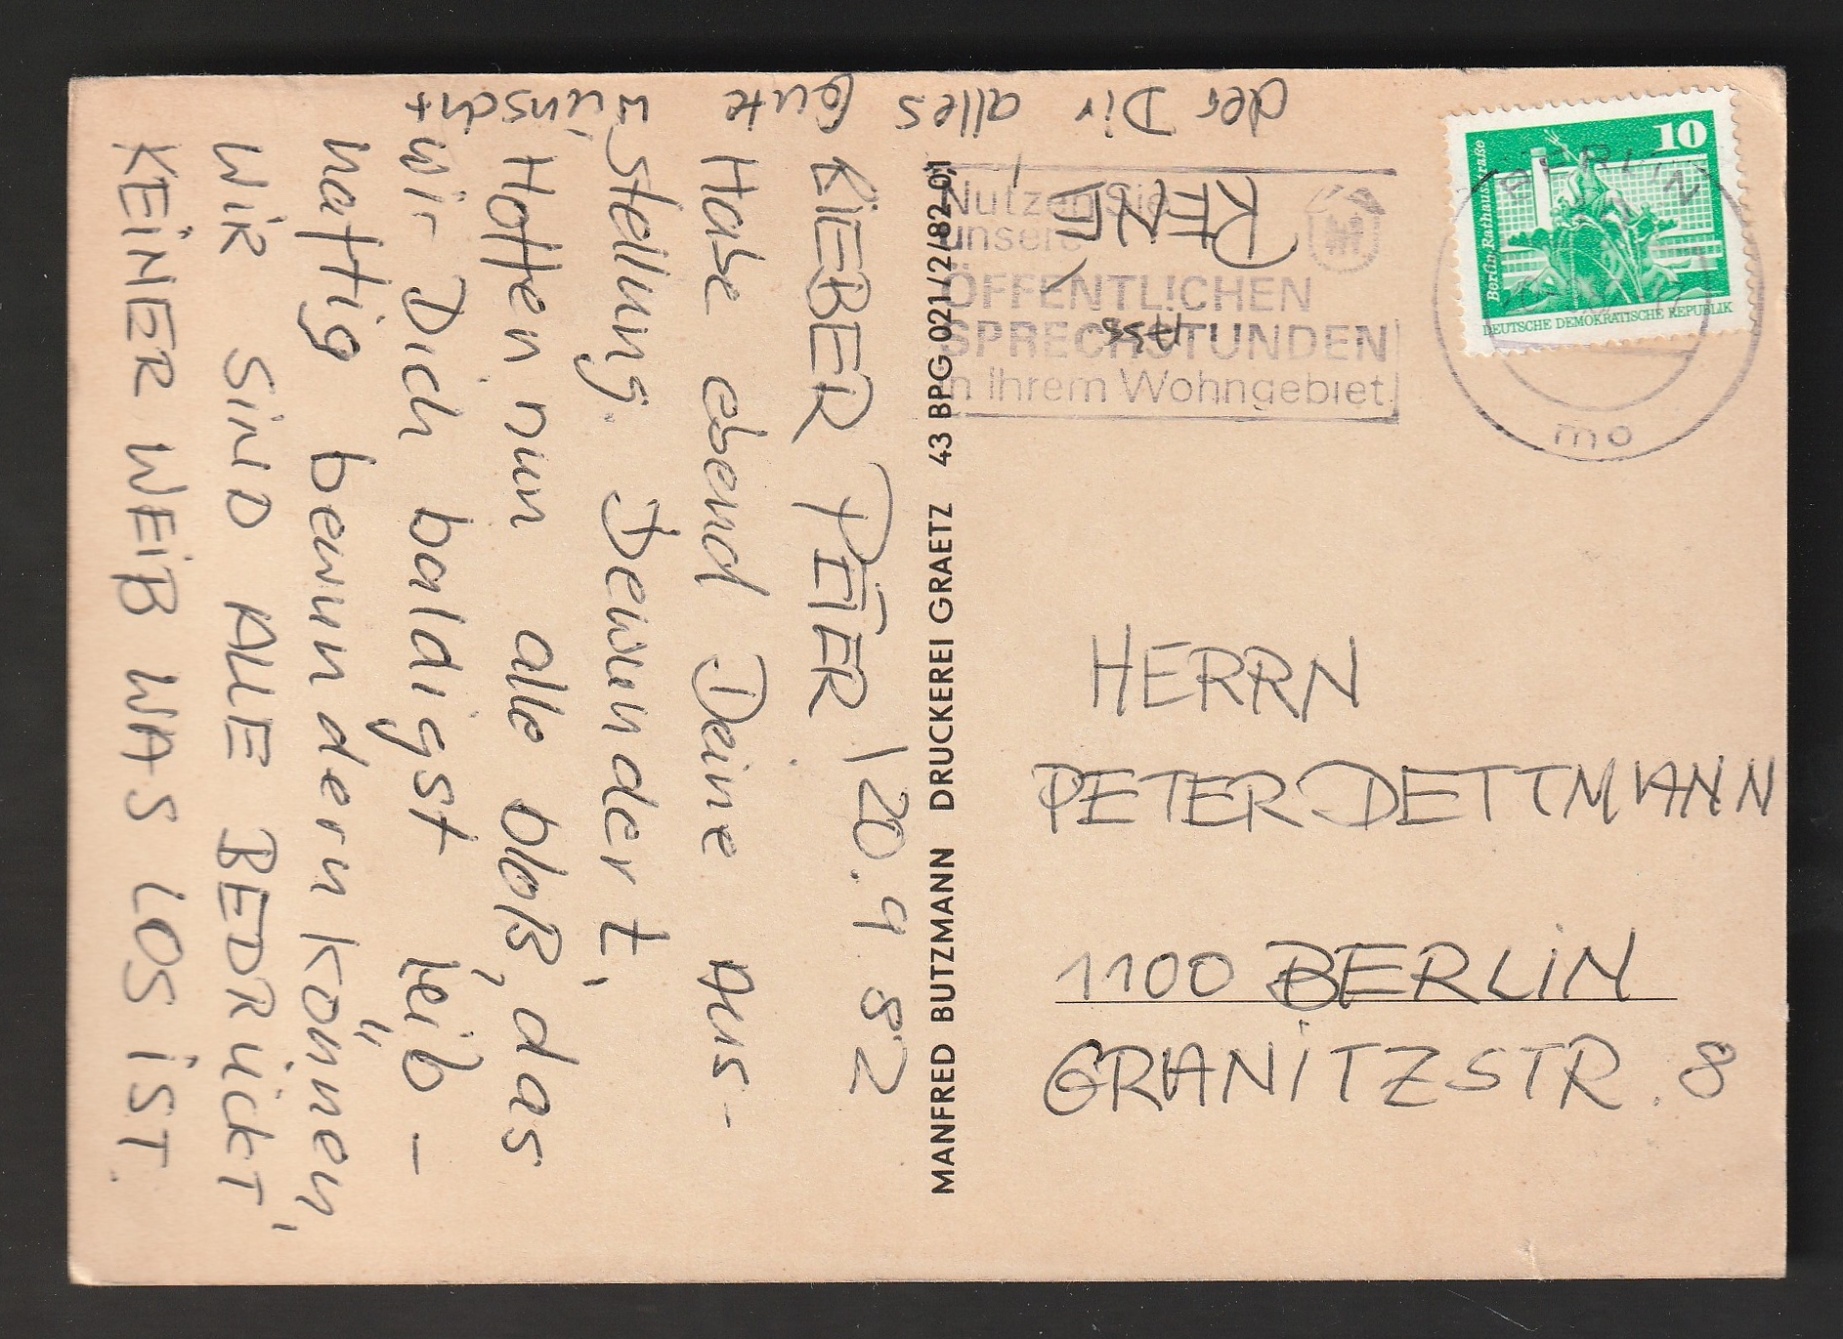 LiEBER PETER 20.4.82
Habe ebend Deine Aus-
stellung. Dewundert,
Hoffen nun alle bloß, das
wir Dich baldigst leib-
haftig bewundern können,
WiR SiND ALLE BEDRÜCKT,
KEiNER WEiß WAS LOS iST.
der Dir alles Gute wünscht
MANFRED BUTZMANN DRUCKEREI GRAETZ 43 BPG 021/2/82 0,1
Nutzen Sie
unsere
ÖFFENTLICHEN
SPRECHSTUNDEN
in Ihrem Wohngebiet
BERLIN
mo
10
Berlin, Rathausstraße
DEUTSCHE DEMOKRATISCHE REPUBLIK
HERRN
PETER DETTMANN
1100 BERLiN
GRANiTZSTR. 8